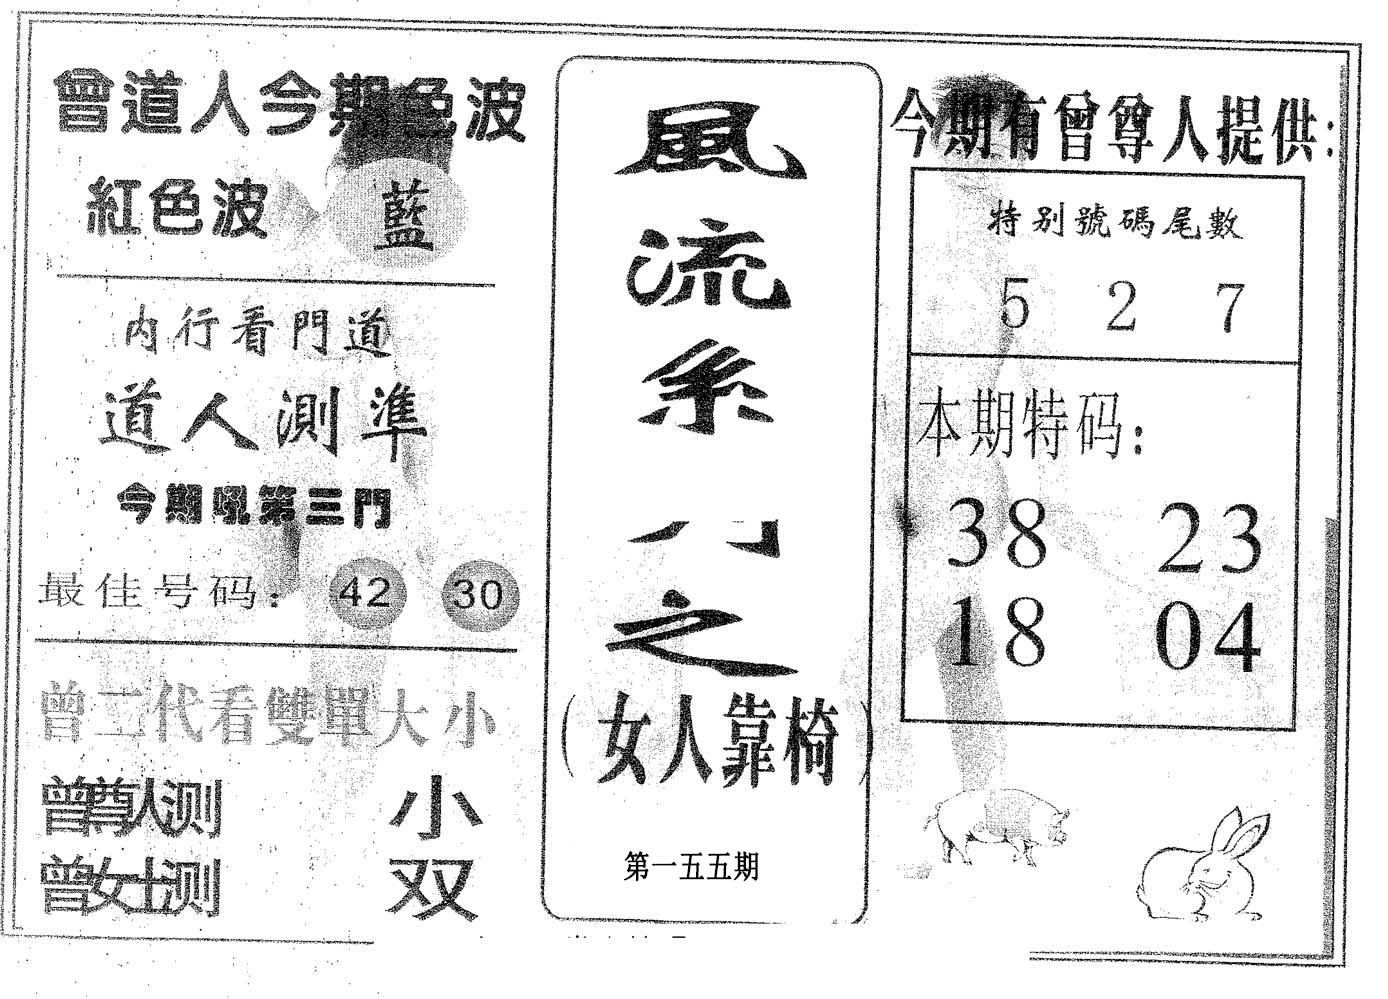 曾道人今期色波
紅色波 藍
内行看門道
道人測準
今期吼第三門
最佳号码： 42 30
曾二代看雙單大小
曾尊人测 小
曾女士测 双
風
流
系
之
(女人靠椅)
第一五五期
今期有曾尊人提供：
特别號碼尾數
5 2 7
本期特码：
38 23
18 04